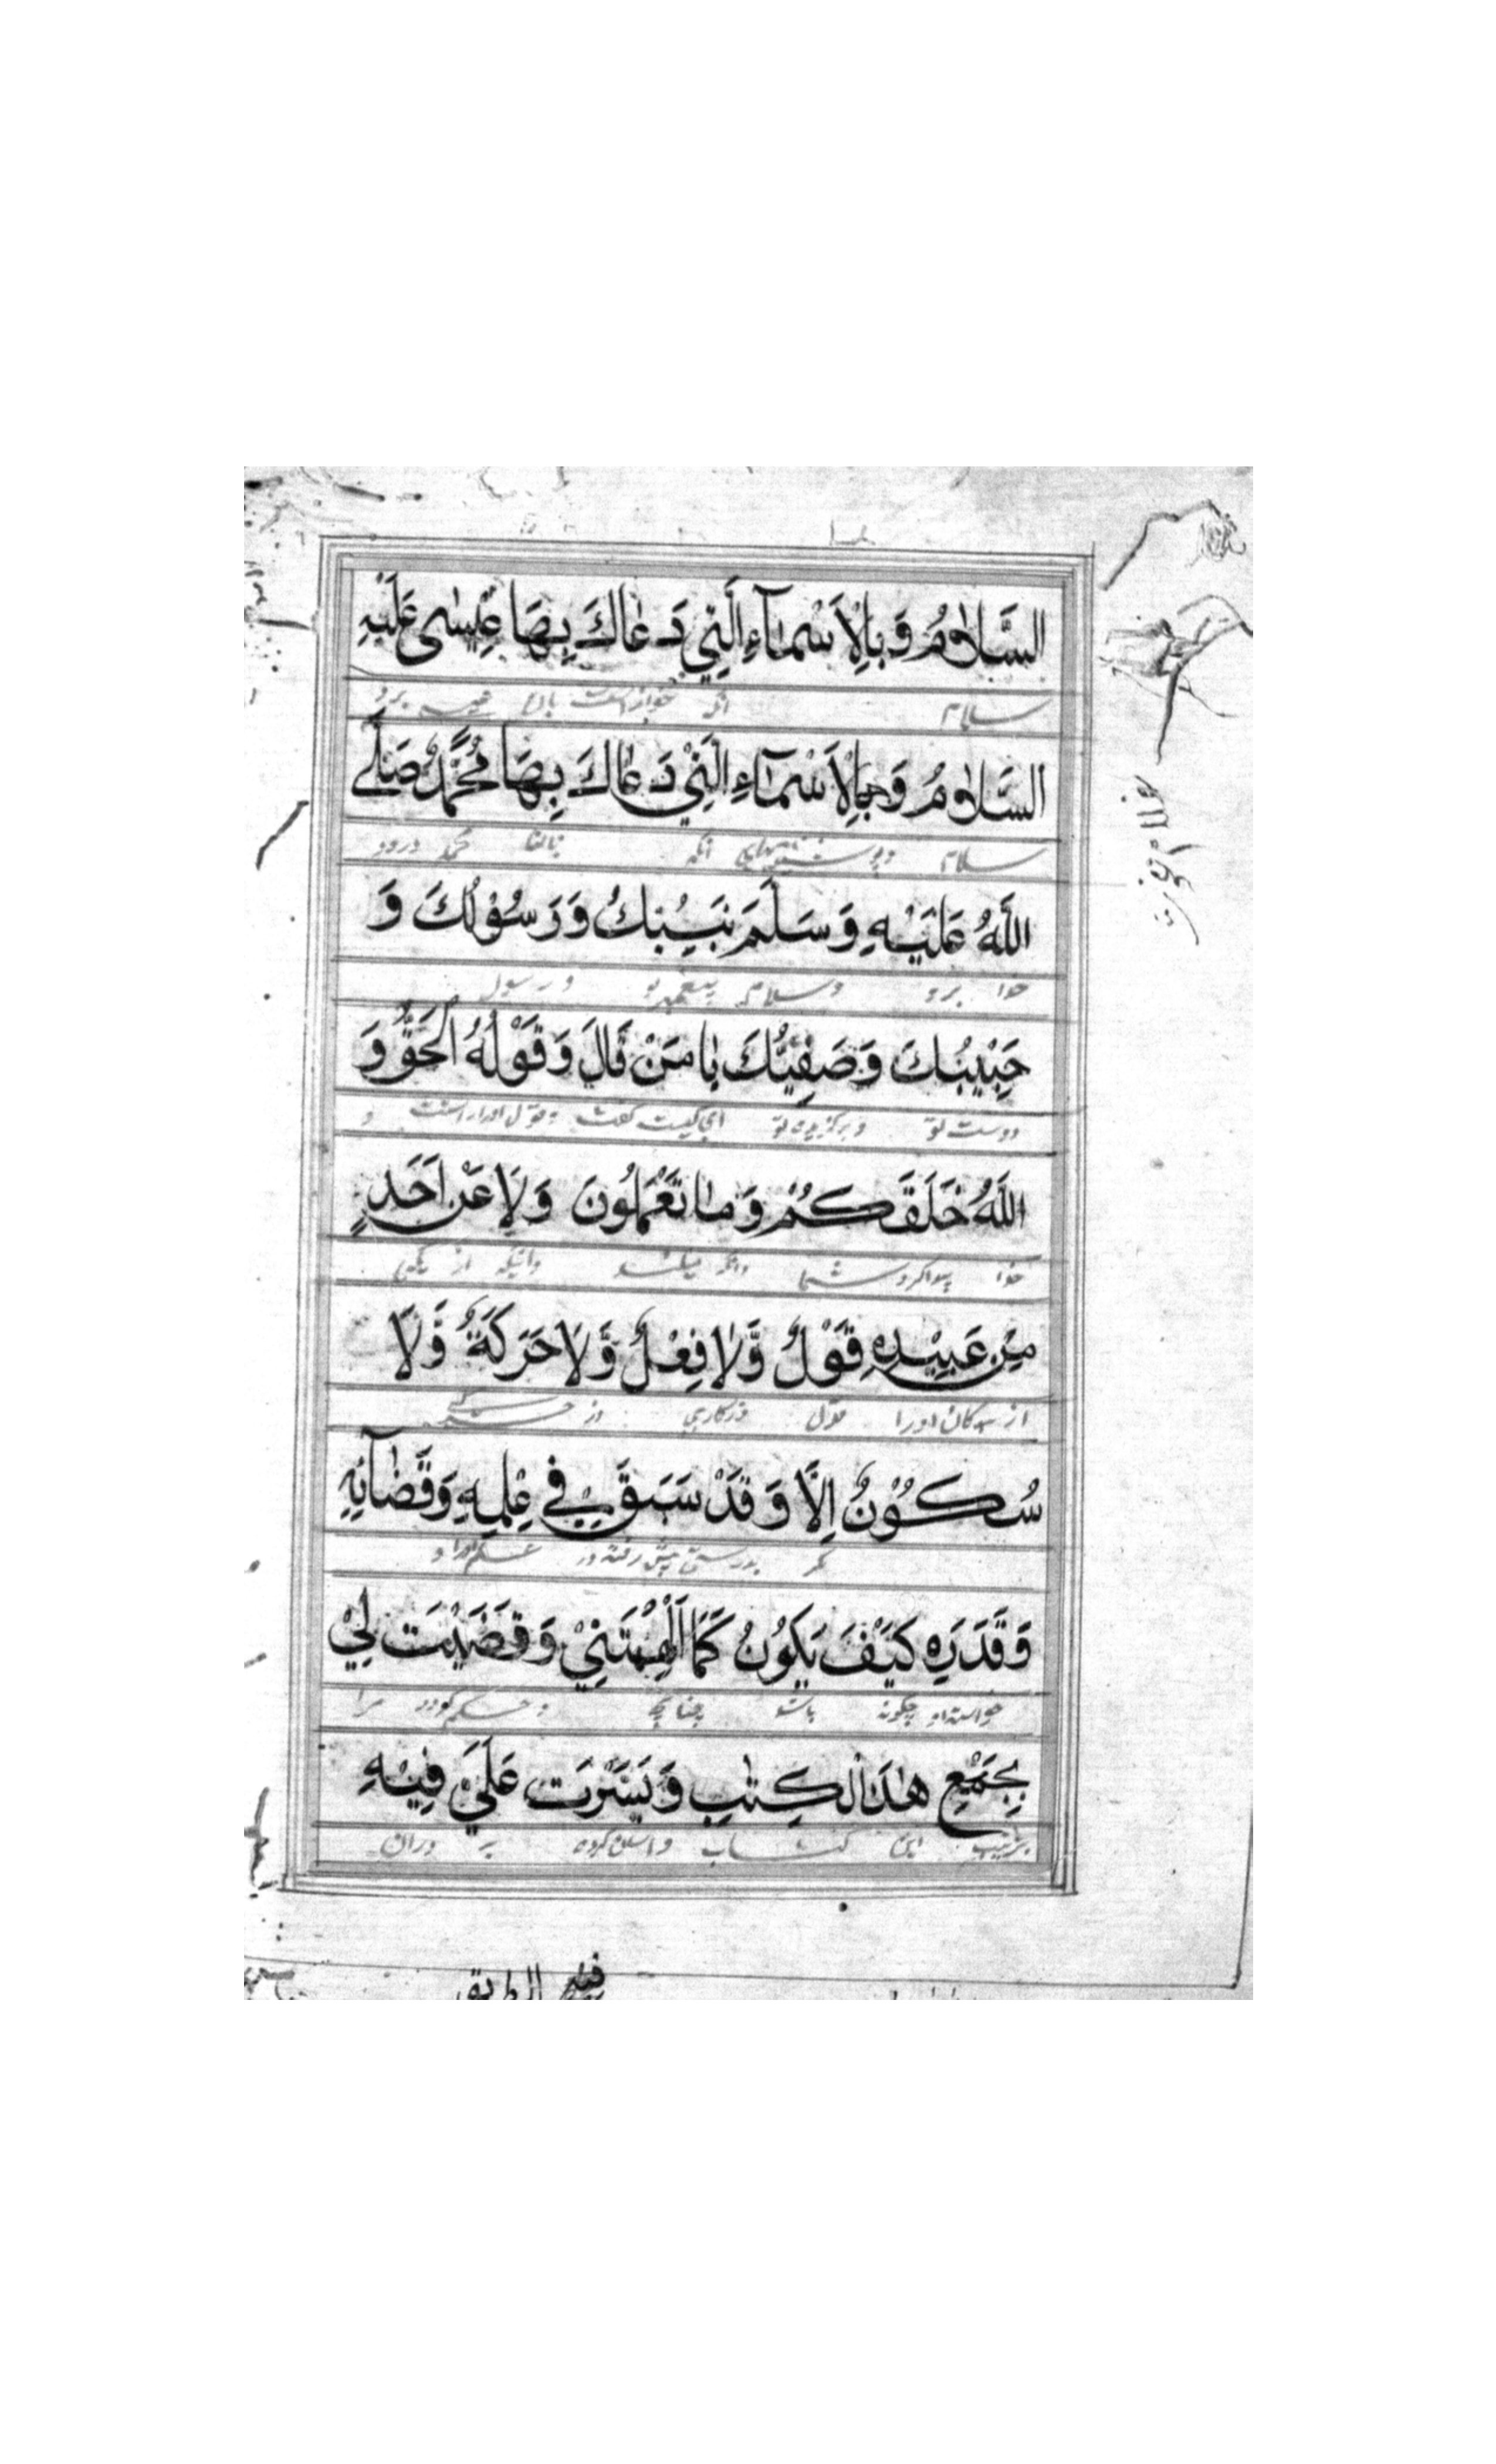 السَّلَامُ وَبِالْاَسْمَآءِ الَّتِيْ دَعَاكَ بِهَا عِيْسٰى عَلَيْهِ
سلام آنکه خوانداست بان عیسی برو
السَّلَامُ وَبِالْاَسْمَآءِ الَّتِيْ دَعَاكَ بِهَا مُحَمَّدٌ صَلَّى
سلام آنکه محمد درود
اللّٰهُ عَلَيْهِ وَسَلَّمَ نَبِيُّكَ وَرَسُوْلُكَ وَ
خدا برو وسلام پیغمبر تو ورسول
حَبِيْبُكَ وَصَفِيُّكَ يَا مَنْ قَالَ وَقَوْلُهُ الْحَقُّ وَ
دوست تو وبرگزیده تو ای کیست گفت وقول او راست و
اللّٰهُ خَلَقَكُمْ وَمَا تَعْمَلُونَ وَلَا عَنْ اَحَدٍ
خدا پیدا کرد شما وآنکه وآنیکه از یکی
مِنْ عَبِيْدِهِ قَوْلٌ وَّلَا فِعْلٌ وَّلَا حَرَكَةٌ وَّلَا
از بندگان اورا قول
سُكُوْنٌ اِلَّا وَقَدْ سَبَقَ فِيْ عِلْمِهِ وَقَضَآئِهِ
مگر بدرستی پیش رفته در علم او
وَقَدَرِهِ كَيْفَ يَكُوْنُ كَمَا اَلْهَمْتَنِيْ وَقَضَيْتَ لِيْ
چگونه باشد چنانچه وحکم کردی مرا
بِجَمْعِ هٰذَا الْكِتٰبِ وَيَسَّرْتَ عَلَيَّ فِيْهِ
بترتیب این کتاب واسان کرده بر دران
فيه الطريق